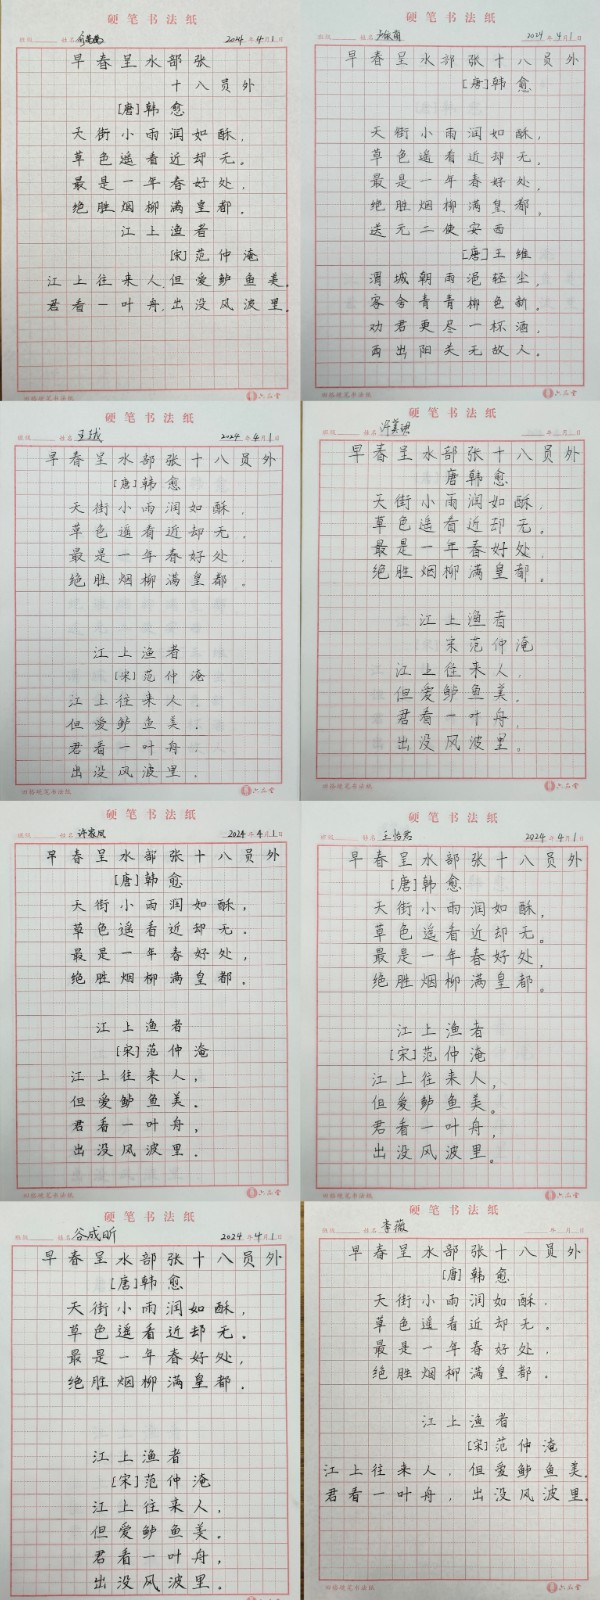 硬笔书法纸
班级 姓名 2024年4月1日
早春呈水部张
十八员外
[唐]韩愈
天街小雨润如酥,
草色遥看近却无。
最是一年春好处,
绝胜烟柳满皇都.
江上渔者
[宋]范仲淹
江上往来人,但爱鲈鱼美.
君看一叶舟,出没风波里.
田格硬笔书法纸 六品堂
硬笔书法纸
班级 姓名 2024年4月1日
早春呈水部张十八员外
[唐]韩愈
天街小雨润如酥,
草色遥看近却无。
最是一年春好处,
绝胜烟柳满皇都。
送元二使安西
[唐]王维
渭城朝雨浥轻尘,
客舍青青柳色新.
劝君更尽一杯酒,
西出阳关无故人.
田格硬笔书法纸 六品堂
硬笔书法纸
班级 姓名 2024年4月1日
早春呈水部张十八员外
[唐]韩愈
天街小雨润如酥,
草色遥看近却无.
最是一年春好处,
绝胜烟柳满皇都.
江上渔者
[宋]范仲淹
江上往来人.
但爱鲈鱼美.
君看一叶舟
出没风波里.
田格硬笔书法纸 六品堂
硬笔书法纸
姓名 年 月 日
早春呈水部张十八员外
唐韩愈
天街小雨润如酥,
草色遥看近却无。
最是一年春好处
绝胜烟柳满皇都。
江上渔者
宋范仲淹
江上往来人,
但爱鲈鱼美.
君看一叶舟,
出没风波里。
田格硬笔书法纸 六品堂
硬笔书法纸
班级 姓名 许家凤 2024年4月1日
早春呈水部张十八员外
[唐]韩愈
天街小雨润如酥,
草色遥看近却无.
最是一年春好处,
绝胜烟柳满皇都.
江上渔者
[宋]范仲淹
江上往来人,
但爱鲈鱼美.
君看一叶舟,
出没风波里.
田格硬笔书法纸 六品堂
硬笔书法纸
班级 姓名 王怡君 2024年4月1日
早春呈水部张十八员外
[唐]韩愈
天街小雨润如酥,
草色遥看近却无。
最是一年春好处,
绝胜烟柳满皇都。
江上渔者
[宋]范仲淹
江上往来人,
但爱鲈鱼美。
君看一叶舟,
出没风波里。
田格硬笔书法纸 六品堂
硬笔书法纸
班级 姓名 谷成昕 2024年4月1日
早春呈水部张十八员外
[唐]韩愈
天街小雨润如酥,
草色遥看近却无.
最是一年春好处,
绝胜烟柳满皇都.
江上渔者
[宋]范仲淹
江上往来人,
但爱鲈鱼美.
君看一叶舟,
出没风波里.
硬笔书法纸
班级 姓名 李薇 年 月 日
早春呈水部张十八员外
[唐]韩愈
天街小雨润如酥.
草色遥看近却无.
最是一年春好处,
绝胜烟柳满皇都.
江上渔者
[宋]范仲淹
江上往来人,但爱鲈鱼美.
君看一叶舟,出没风波里.
田格硬笔书法纸 六品堂